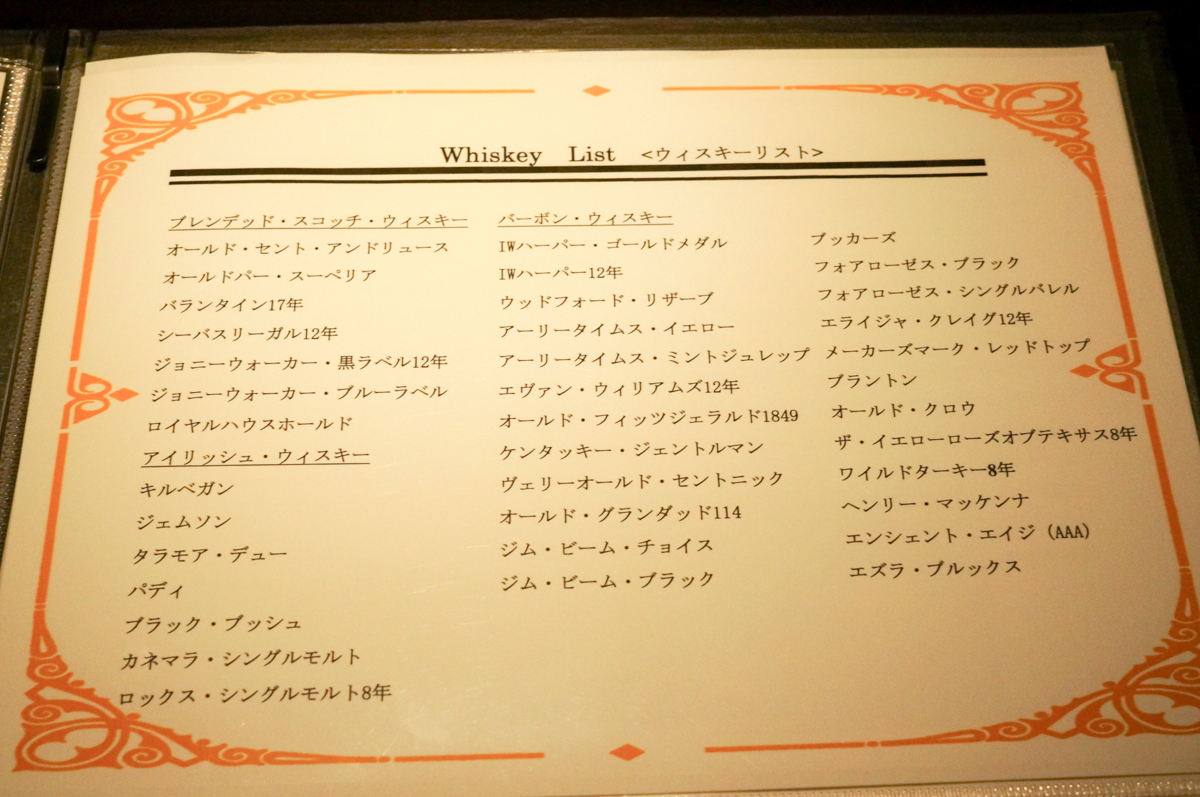 Whiskey List <ウィスキーリスト>
ブレンデッド・スコッチ・ウィスキー
オールド・セント・アンドリュース
オールドパー・スーペリア
バランタイン17年
シーバスリーガル12年
ジョニーウォーカー・黒ラベル12年
ジョニーウォーカー・ブルーラベル
ロイヤルハウスホールド
アイリッシュ・ウィスキー
キルベガン
ジェムソン
タラモア・デュー
パディ
ブラック・ブッシュ
カネマラ・シングルモルト
ロックス・シングルモルト8年
バーボン・ウィスキー
IWハーパー・ゴールドメダル
IWハーパー12年
ウッドフォード・リザーブ
アーリータイムス・イエロー
アーリータイムス・ミントジュレップ
エヴァン・ウィリアムズ12年
オールド・フィッツジェラルド1849
ケンタッキー・ジェントルマン
ヴェリーオールド・セントニック
オールド・グランダッド114
ジム・ビーム・チョイス
ジム・ビーム・ブラック
ブッカーズ
フォアローゼス・ブラック
フォアローゼス・シングルバレル
エライジャ・クレイグ12年
メーカーズマーク・レッドトップ
ブラントン
オールド・クロウ
ザ・イエローローズオブテキサス8年
ワイルドターキー8年
ヘンリー・マッケンナ
エンシェント・エイジ (AAA)
エズラ・ブルックス